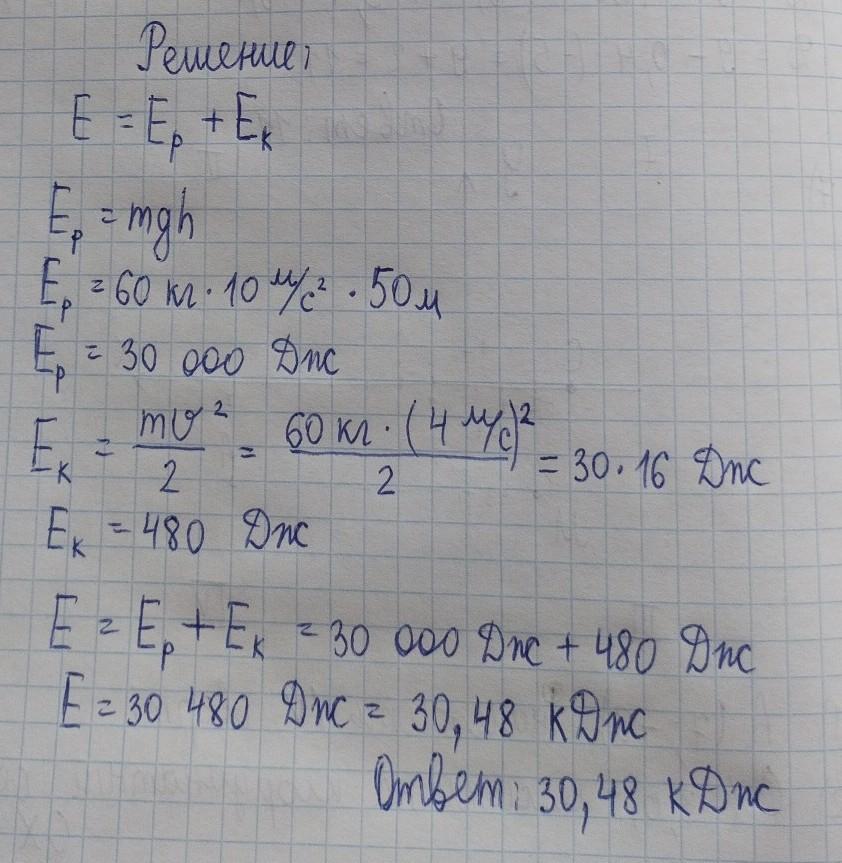 Решение:
E = Eₚ + Eₖ
Eₚ = mgh
Eₚ = 60 кг · 10 м/с² · 50 м
Eₚ = 30 000 Дж
Eₖ = mυ²/2 = 60 кг · (4 м/с)²/2 = 30 · 16 Дж
Eₖ = 480 Дж
E = Eₚ + Eₖ = 30 000 Дж + 480 Дж
E = 30 480 Дж = 30,48 кДж
Ответ: 30,48 кДж